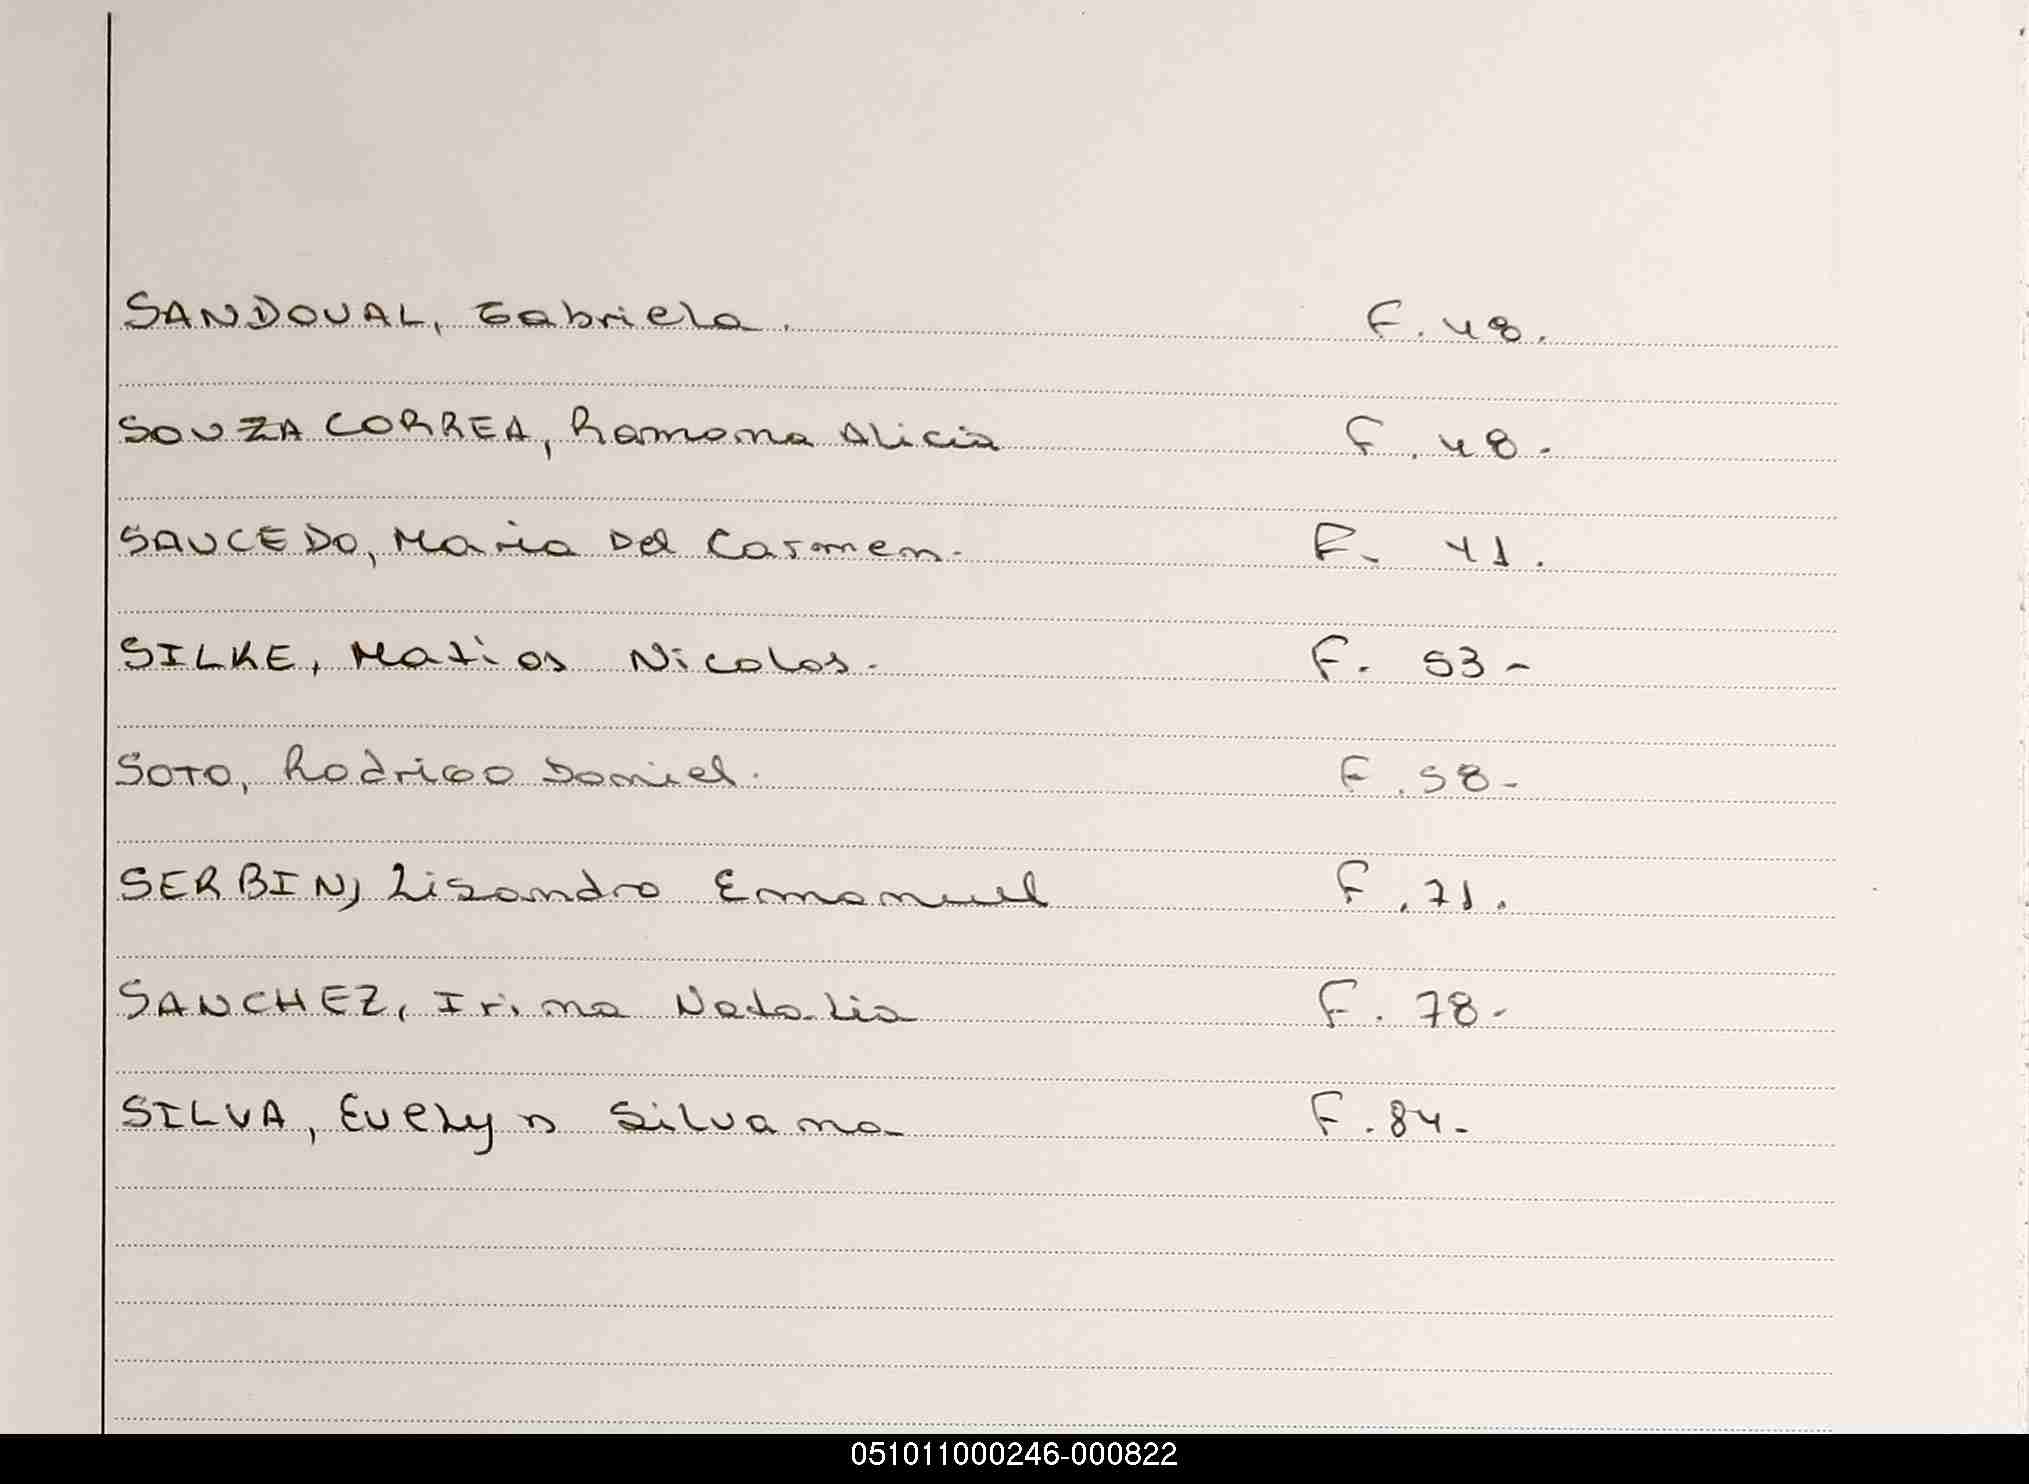 SANDOVAL, Gabriela. F. 48.
SOUZA CORREA, Ramona Alicia F. 48.
SAUCEDO, Maria Del Carmen. F. 41.
SILKE, Matias Nicolas. F. 53-
SOTO, Rodrigo Daniel. F. 58-
SERBIN, Lisandro Emanuel F. 71.
SANCHEZ, Irina Natalia F. 78-
SILVA, Evelyn Silvana F. 84-
051011000246-000822